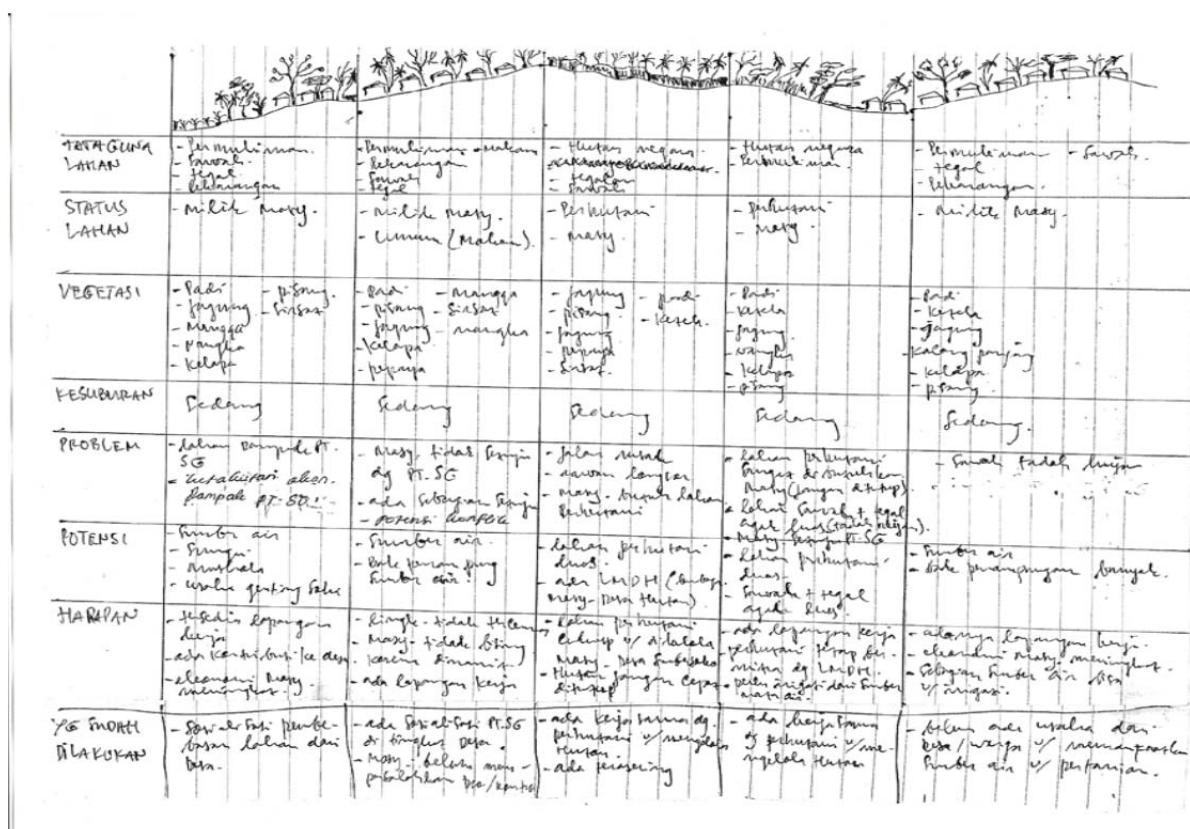 TATA GUNA LAHAN
- Permukiman.
- Sawah.
- tegal
- Pekarangan
- Permukiman - Makam
- Pekarangan
- Sawah
- tegal
- Hutan negara.
- tegalan
- Sawah
- Hutan negara
- Permukiman.
- Permukiman - Sawah.
- tegal
- Pekarangan.
STATUS LAHAN
- Milik Masy.
- Milik Masy.
- Umum (Makam).
- Perhutani
- Masy.
- perhutani
- Masy.
- Milik Masy.
VEGETASI
- Padi - pisang.
- jagung - Sirsat
- Mangga
- Nangka
- Kelapa
- Padi - Mangga
- pisang - Sirsat
- jagung - nangka
- Kelapa
- pepaya
- jagung - padi
- pisang - ketela.
- jagung
- pepaya
- Sirsat.
- Padi
- ketela
- jagung
- nangka
- kelapa
- pisang
- Padi
- ketela
- jagung
- Kacang panjang
- kelapa
- pisang.
KESUBURAN
Sedang
Sedang
Sedang
Sedang
Sedang.
PROBLEM
- lahan dampak PT. SG
- akan dampak PT-SG!!
- Masy. tidak setuju dg PT. SG
- ada sebagian setuju
- potensi konflik
- jalan rusak
- rawan longsor
- Masy. butuh lahan Perhutani
- lahan perhutani sangat dibutuhkan Masy (jangan ditutup)
- lahan Sawah + tegal agak luas (tadah hujan).
- Masy setuju PT-SG
- Sawah tadah hujan
POTENSI
- Sumber air
- Sungai
- Mushola
- usaha genting
- Sumber air.
- Bak penampung Sumber air!
- lahan perhutani luas.
- ada LMDH (Lembaga Masy. Desa Hutan)
- lahan perhutani luas.
- Sawah + tegal agak luas.
- Sumber air
- Bak penampungan banyak.
HARAPAN
- tersedia lapangan kerja
- ada kontribusi ke desa
- ekonomi Masy. meningkat.
- lingk. tidak
- Masy. tidak bising karena dinamit
- ada lapangan kerja
- lahan perhutani cukup u/ dikelola Masy. Desa
- Hutan jangan cepat ditutup
- ada lapangan kerja
- perhutani tetap bermitra dg LMDH.
- perlu irigasi dari Sumber mata air.
- adanya lapangan kerja.
- ekonomi masy. meningkat.
- Sebagian Sumber air bisa u/ irigasi.
YG SUDAH DILAKUKAN
- Sosialisasi pembebasan lahan dari Desa.
- ada Sosialisasi PT.SG di tingkat Desa.
- Masy. belum
- ada kerjasama dg. perhutani u/ mengelola Hutan.
- ada terasering
- ada kerja sama dg perhutani u/ mengelola Hutan
- belum ada usaha dari Desa/warga u/ memanfaatkan Sumber air u/ pertanian.